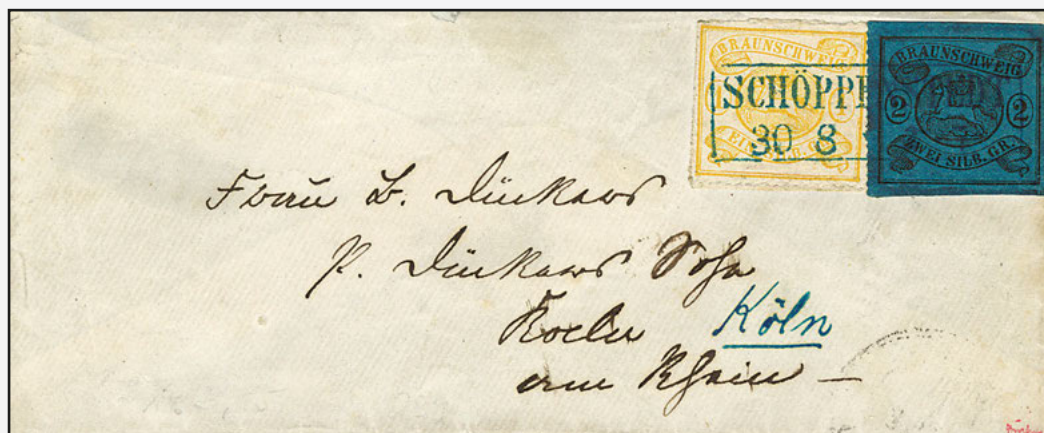 BRAUNSCHWEIG
1 1
SCHÖPP
30 8
EI B.GR.
BRAUNSCHWEIG
2 2
ZWEI SILB. GR.
Frau B. Dückers
P. Dückers Sohn
Koeln Köln
am Rhein —